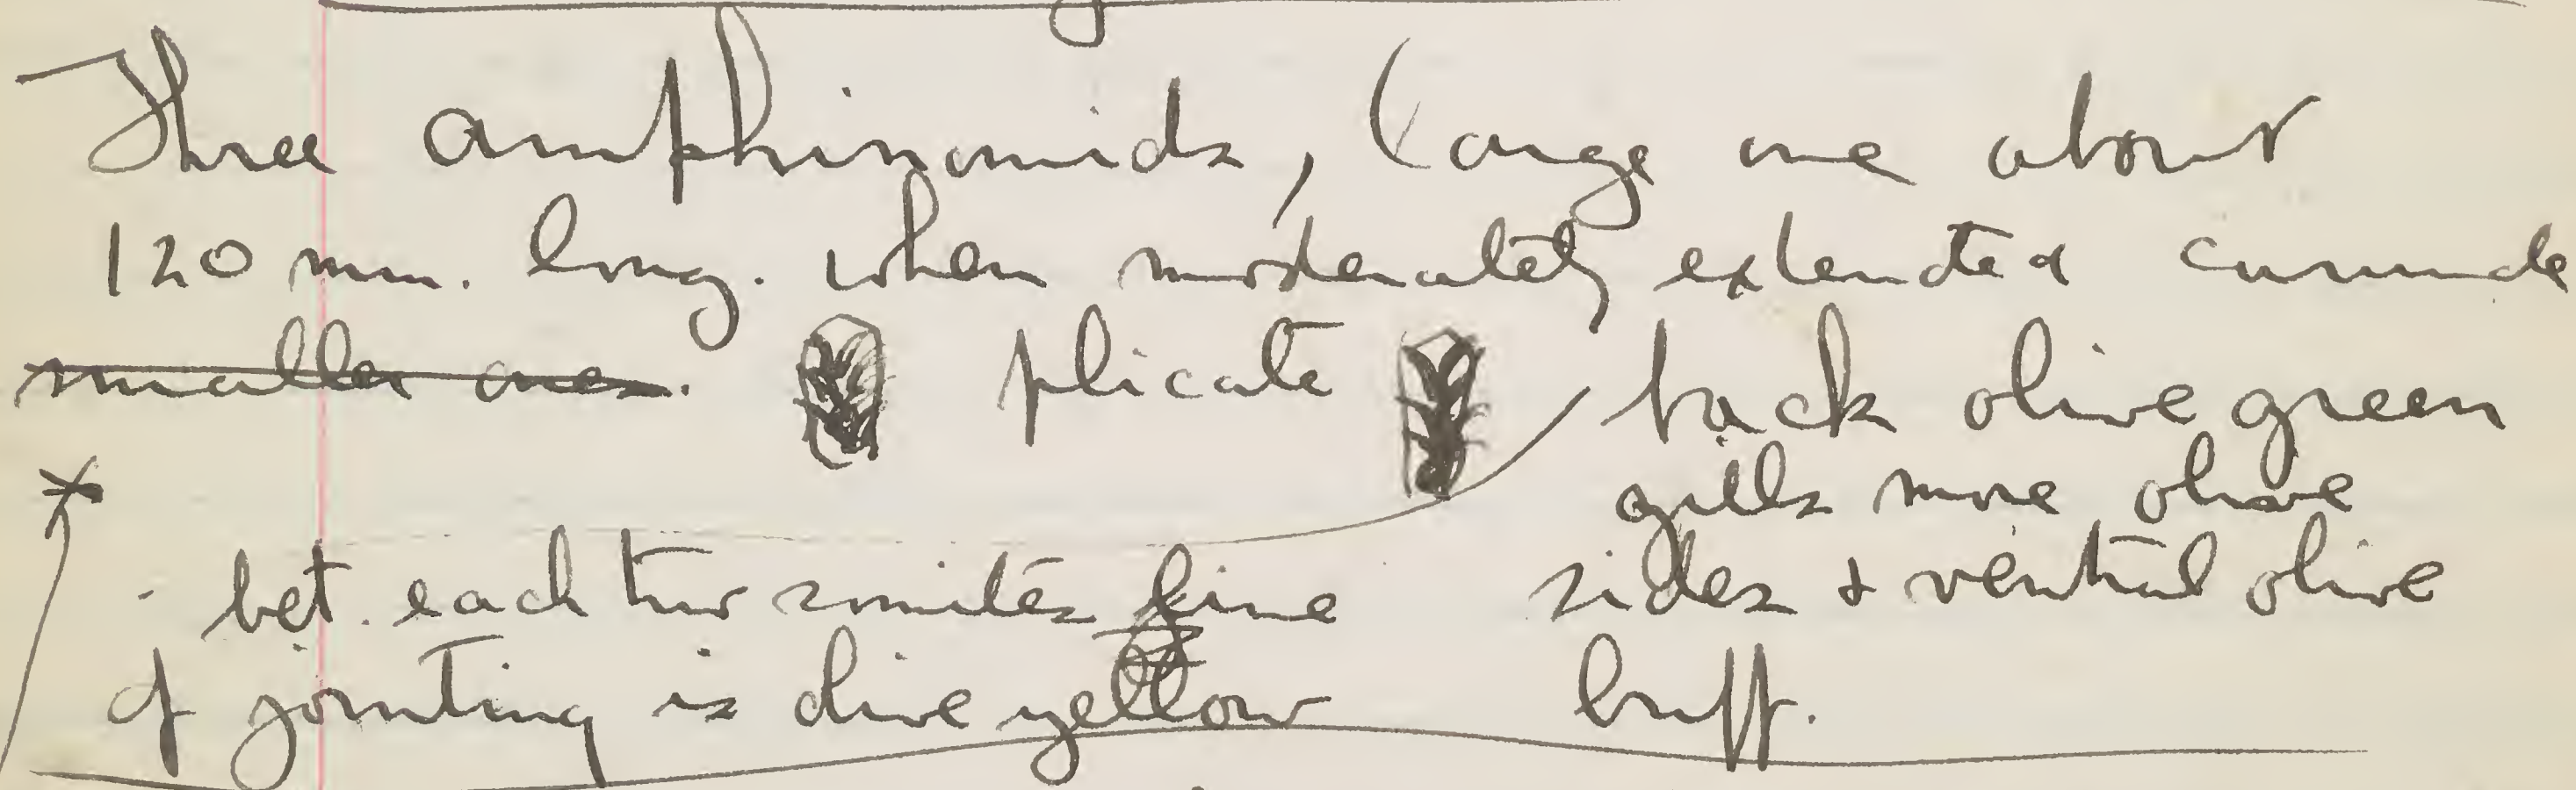 Three amphinomids, large one about
120 mm. long. when moderately extended caruncle
smaller ones. plicate
back olive green
gills more olive
sides & ventral olive
buff.
bet. each two somites line
of jointing is olive yellow